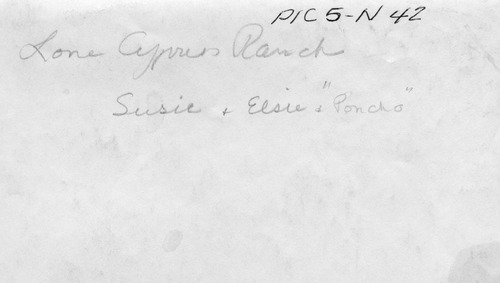 PIC 5-N 42
Lone Cypress Ranch
Susie + Elsie + "Poncho"